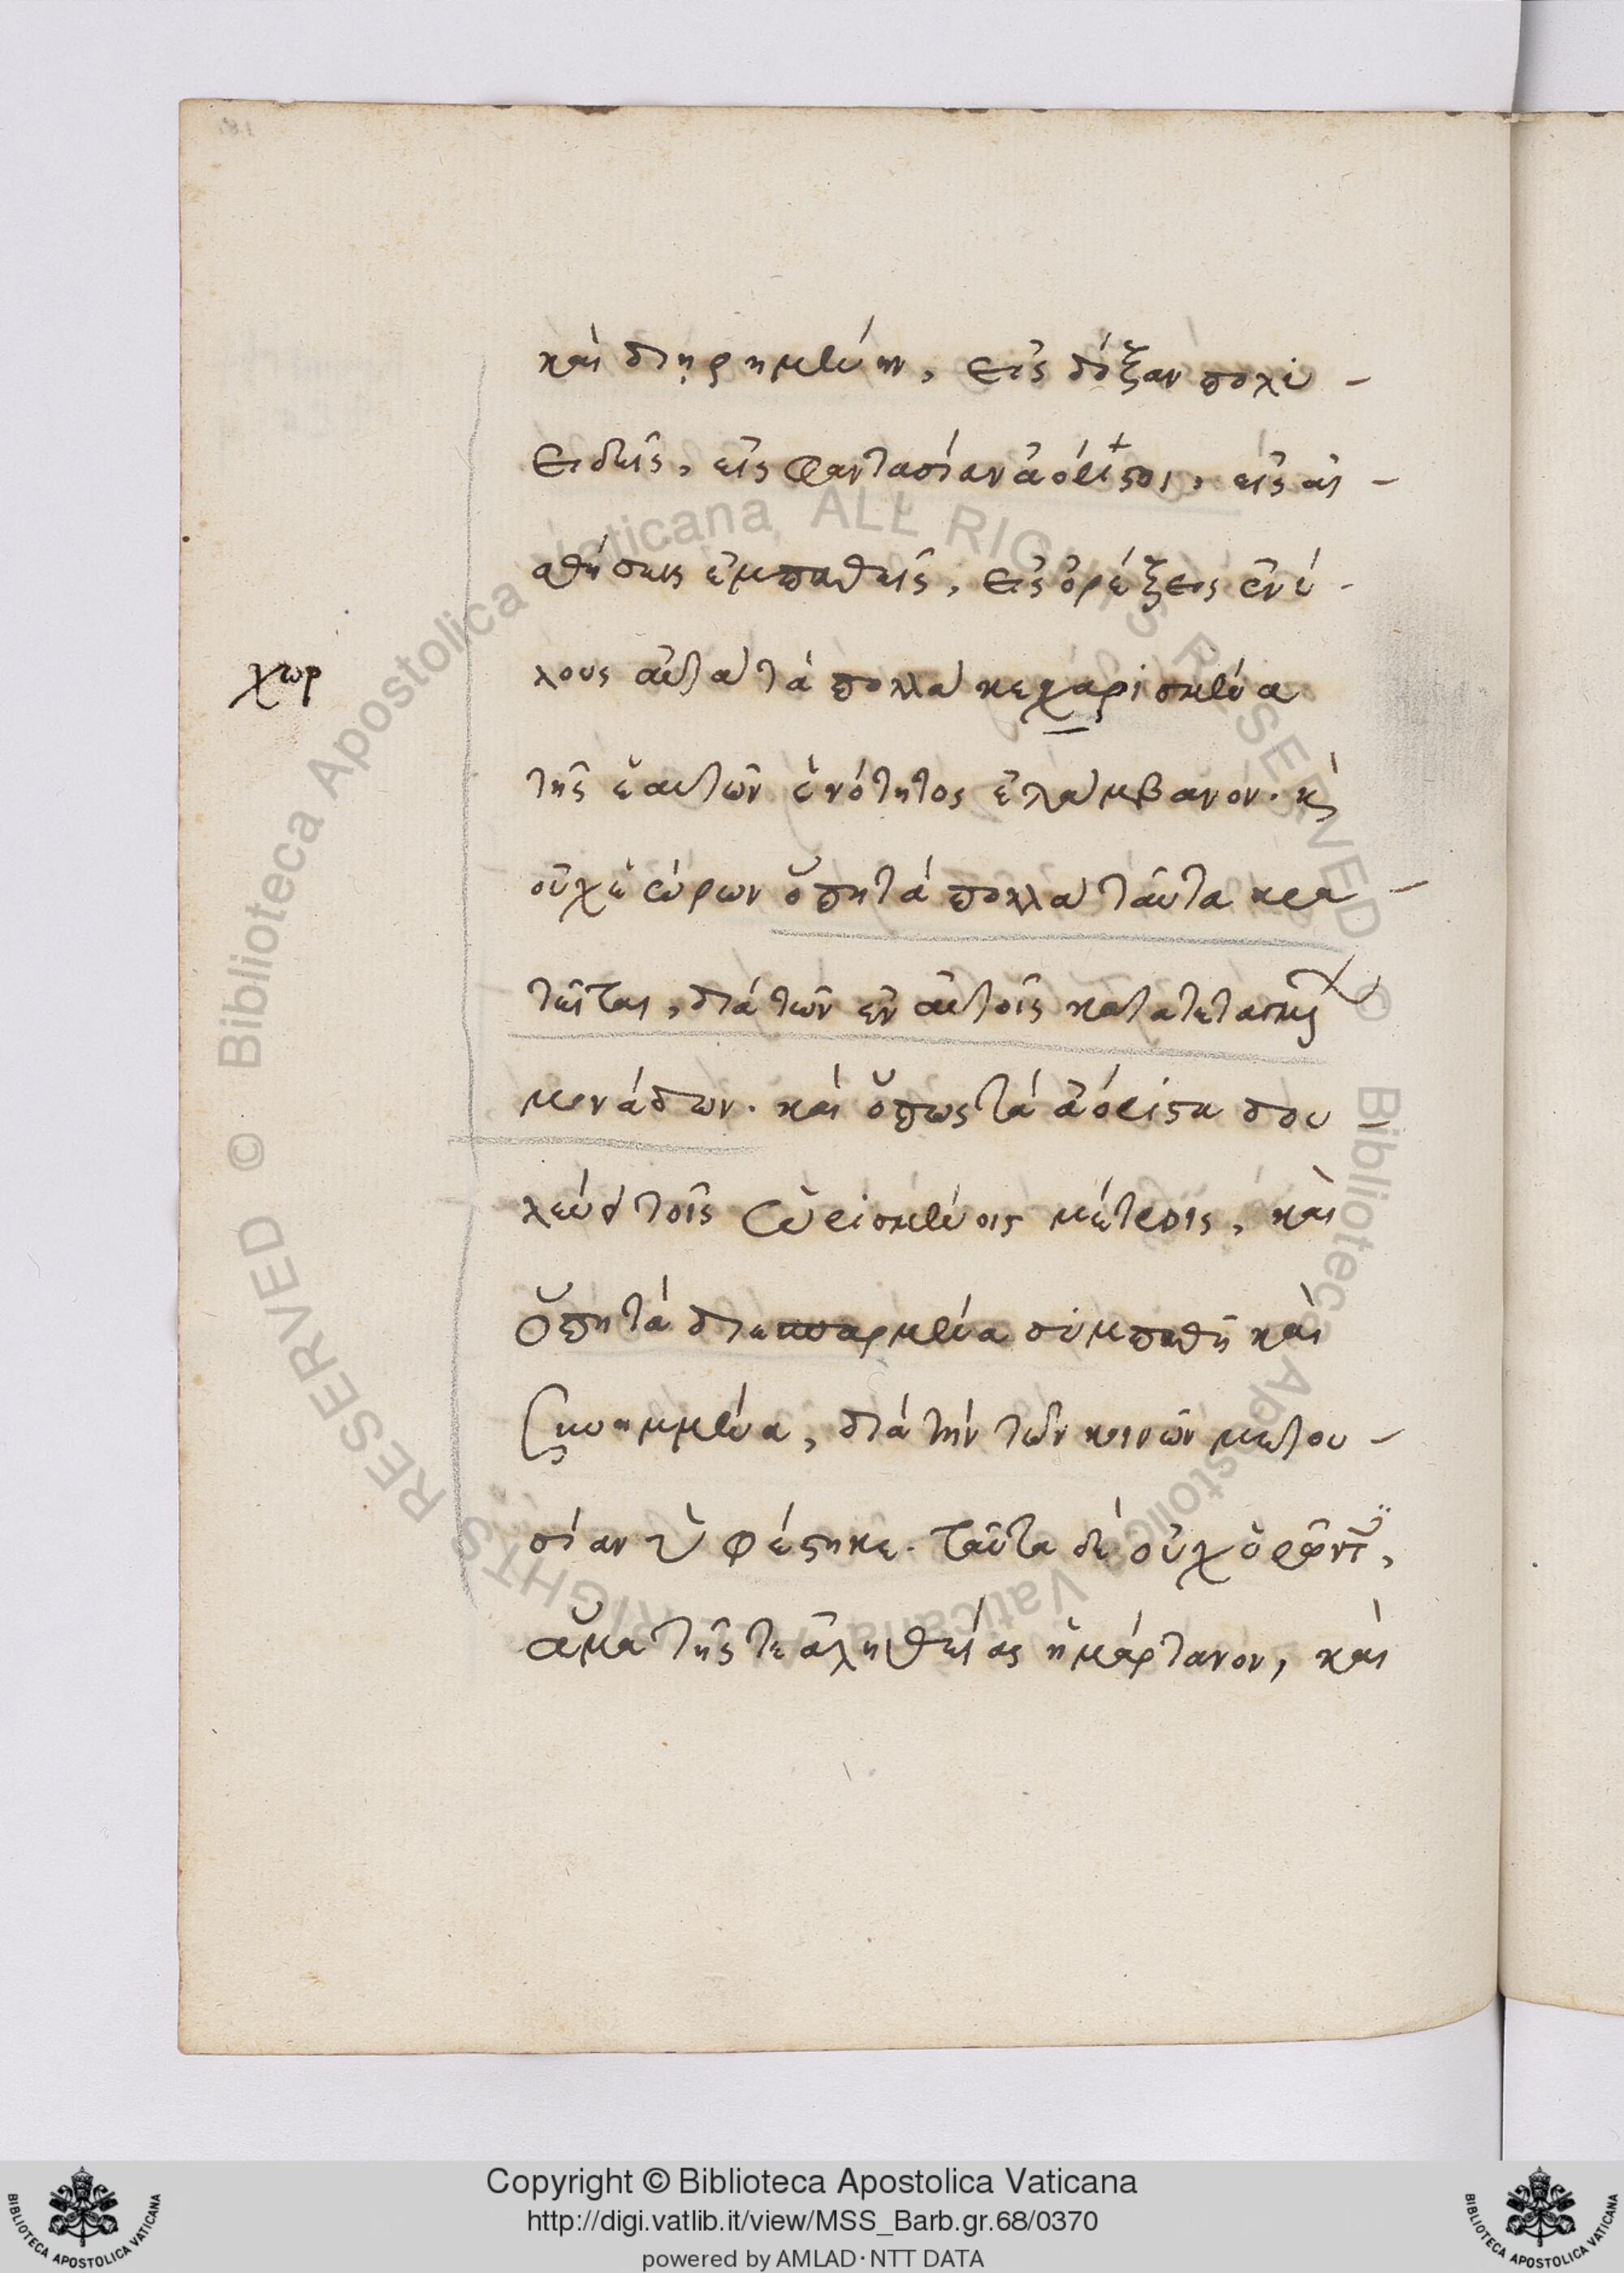 καὶ διῃρημένην, εἰς δόξαν πολυ-
ειδεῖς, εἰς φαντασίαν ἀόριστοι, εἰς αἰ-
σθήσεις ἐμπαθεῖς, εἰς ὀρέξεις ἐνύ-
χωρ
λους αὐτὰ τὰ πολλὰ κεχαρισμένα
τῆς ἑαυτῶν ἑνότητος ἐλάμβανον. καὶ
οὐχ ἑώρων ὅπη τὰ πολλὰ ταῦτα κρα-
τεῖται, διὰ τῶν ἐν αὐτοῖς
μονάδων. καὶ ὅπως τὰ ἀόριστα δου-
λεύει τοῖς ὡρισμένοις μέτροις, καὶ
ὅπη τὰ διεσπαρμένα συμπαθῆ καὶ
συνημμένα, διὰ τὴν τῶν κοινῶν μετου-
σίαν ὑφέστηκε. ταῦτα δὲ οὐχ ὁρῶντες,
ἅμα τῆς τε ἀληθείας ἡμάρτανον, καὶ
Copyright © Biblioteca Apostolica Vaticana
http://digi.vatlib.it/view/MSS_Barb.gr.68/0370
powered by AMLAD·NTT DATA
BIBLIOTECA APOSTOLICA VATICANA
BIBLIOTECA APOSTOLICA VATICANA
© Biblioteca Apostolica Vaticana ALL RIGHTS RESERVED © Biblioteca Apostolica Vaticana ALL RIGHTS RESERVED